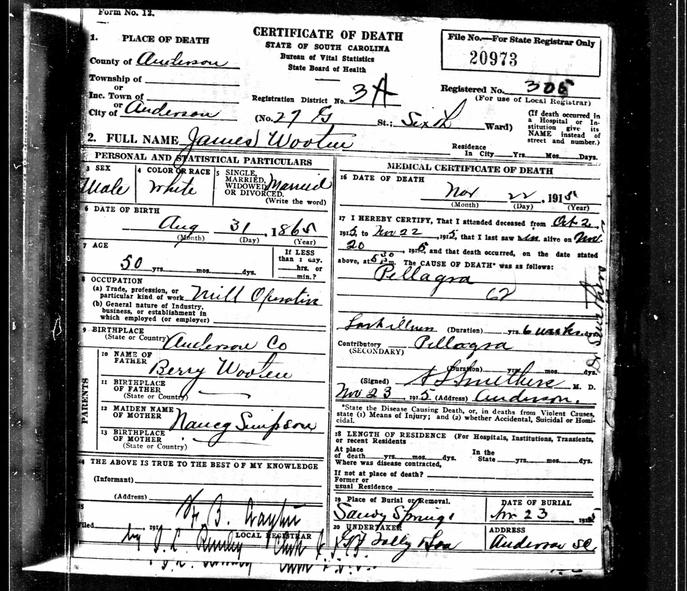 Form No. 12.
CERTIFICATE OF DEATH
STATE OF SOUTH CAROLINA
Bureau of Vital Statistics
State Board of Health
File No.—For State Registrar Only
20973
1. PLACE OF DEATH
County of Anderson
Township of
or
Inc. Town of
or
City of Anderson
Registration District No. 3A
Registered No. 305
(For use of Local Registrar)
(No. 27 G St.; Sixth Ward)
(If death occurred in a Hospital or Institution give its NAME instead of street and number.)
2. FULL NAME James Wooten
Residence In City Yrs. Mos. Days.
PERSONAL AND STATISTICAL PARTICULARS
3 SEX
Male
4 COLOR OR RACE
White
5 SINGLE, MARRIED, WIDOWED OR DIVORCED.
(Write the word)
Married
6 DATE OF BIRTH
Aug 31, 1865
(Month) (Day) (Year)
7 AGE
50 yrs. mos. days.
If LESS than 1 day, hrs. or min.?
8 OCCUPATION
(a) Trade, profession, or particular kind of work Mill Operative
(b) General nature of Industry, business, or establishment in which employed (or employer)
9 BIRTHPLACE
(State or Country) Anderson Co
PARENTS
10 NAME OF FATHER
Berry Wooten
11 BIRTHPLACE OF FATHER
(State or Country)
12 MAIDEN NAME OF MOTHER
Nancy Simpson
13 BIRTHPLACE OF MOTHER
(State or Country)
4 THE ABOVE IS TRUE TO THE BEST OF MY KNOWLEDGE
(Informant)
(Address)
15
Filed 191
LOCAL REGISTRAR
MEDICAL CERTIFICATE OF DEATH
16 DATE OF DEATH
Nov 22, 1915
(Month) (Day) (Year)
17 I HEREBY CERTIFY, That I attended deceased from Oct 2,
1915, to Nov 22 1915, that I last saw him alive on Nov
20 1915, and that death occurred, on the date stated
above, at m. The CAUSE OF DEATH* was as follows:
Pellagra
62
Last illness (Duration) yrs. 6 weeks
Contributory Pellagra
(SECONDARY)
(Duration) yrs. mos. dys.
(Signed) Smethers M. D.
Nov 23 1915 (Address) Anderson.
*State the Disease Causing Death, or, in deaths from Violent Causes, state (1) Means of Injury; and (2) whether Accidental, Suicidal or Homicidal.
18 LENGTH OF RESIDENCE (For Hospitals, Institutions, Transients, or recent Residents
At place of death yrs. mos. days. In the State yrs. mos. days.
Where was disease contracted,
If not at place of death?
Former or usual Residence
19 Place of Burial or Removal.
Sandy Springs
DATE OF BURIAL
23 191
20 UNDERTAKER
ADDRESS
Anderson SC